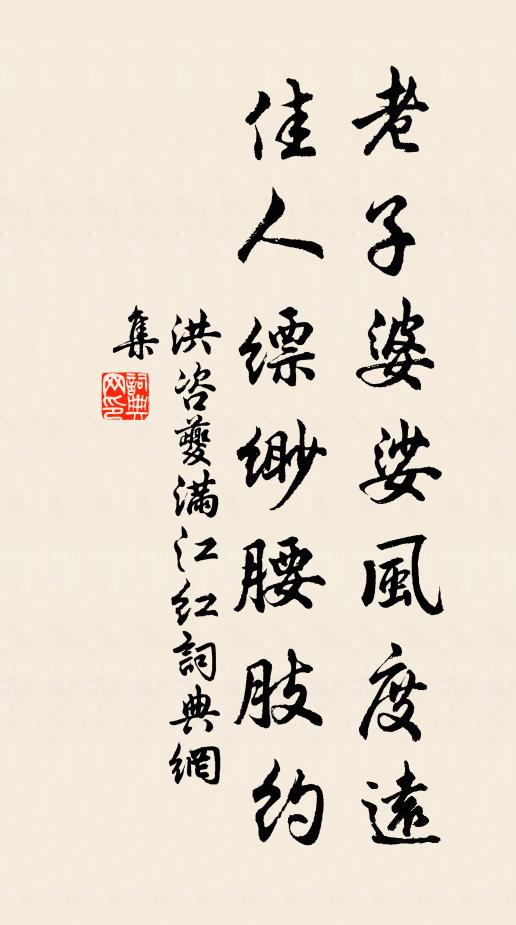 老子婆娑風度遠
佳人縹緲腰肢約
洪咨夔滿江紅詞典網
集
詞典
网印